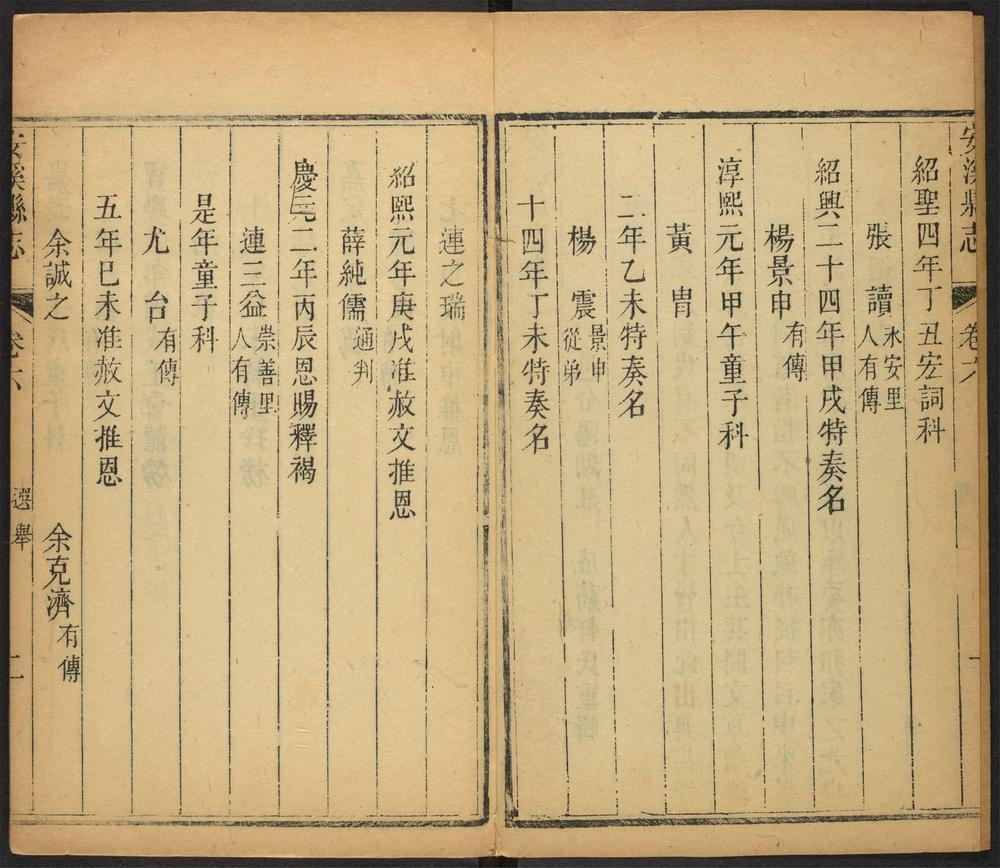 安溪縣志 卷六
紹聖四年丁丑宏詞科
張讀 永安里人有傳
紹興二十四年甲戌特奏名
楊景申 有傳
淳熙元年甲午童子科
黃冑
二年乙未特奏名
楊震 景申從弟
十四年丁未特奏名
連之瑞
紹熙元年庚戌准赦文推恩
薛純儒 通判
慶元二年丙辰恩賜釋褐
連三益 崇善里人有傳
是年童子科
尤台 有傳
五年巳未准赦文推恩
余誠之 余克濟 有傳
安溪縣志 卷六 選舉 二